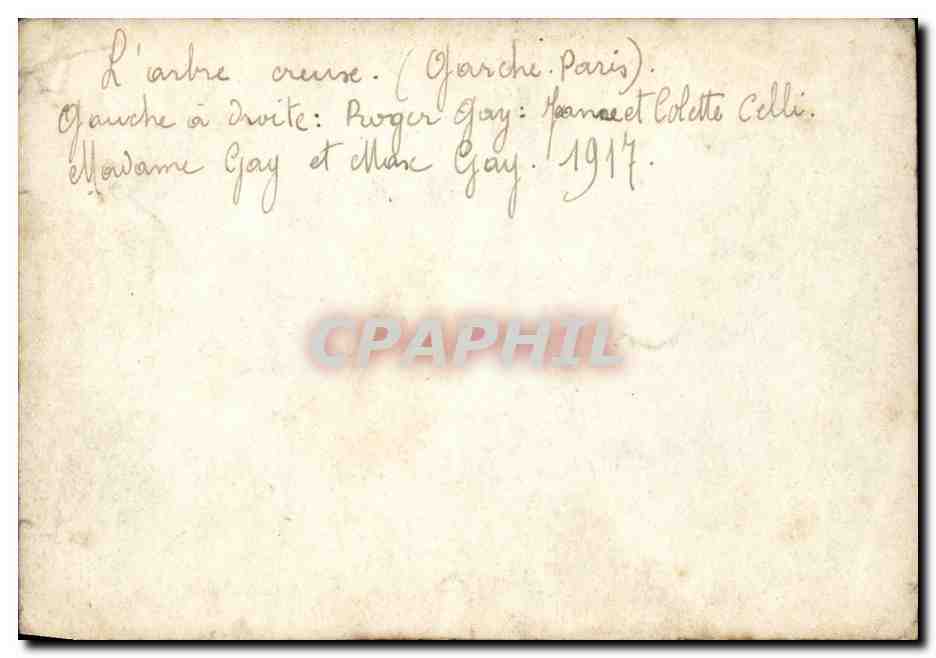 L'arbre creuse. (Garche. Paris).
Gauche à droite: Roger Gay: et Colette Celli.
Madame Gay et Max Gay. 1917.
CPAPHIL